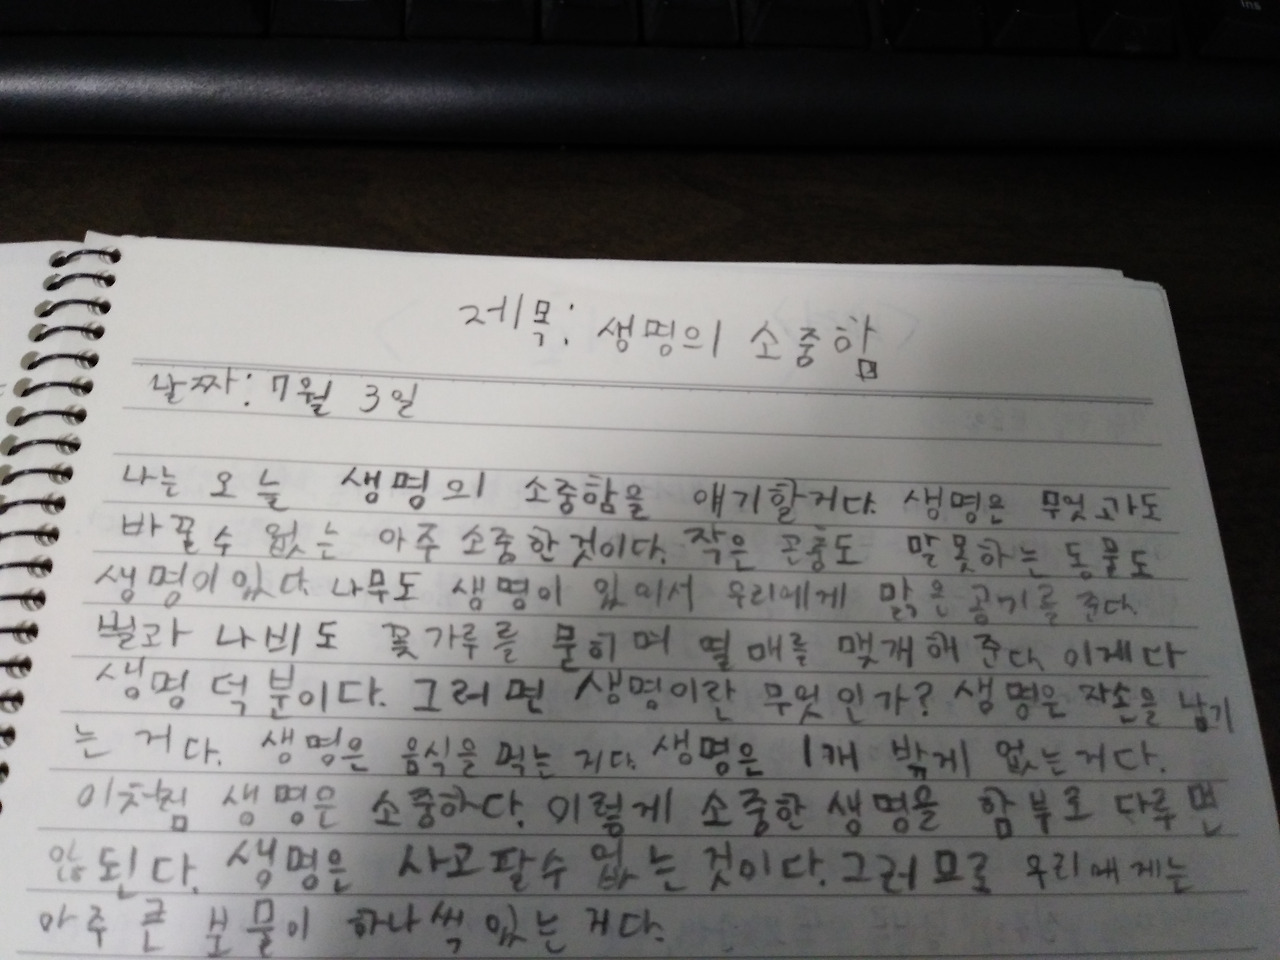 제목: 생명의 소중함
날짜: 7월 3일
나는 오늘 생명의 소중함을 얘기할거다. 생명은 무엇과도
바꿀수 없는 아주 소중한것이다. 작은 곤충도 말못하는 동물도
생명이있다. 나무도 생명이 있어서 우리에게 맑은 공기를 준다.
벌과 나비도 꽃가루를 묻히며 열매를 맺게해 준다. 이게다
생명 덕분이다. 그러면 생명이란 무엇인가? 생명은 자손을 남기
는 거다. 생명은 음식을 먹는거다. 생명은 1개 밖게 없는거다.
이처럼 생명은 소중하다. 이렇게 소중한 생명을 함부로 다루면
않된다. 생명은 사고팔수 없는 것이다. 그러므로 우리에게는
아주 큰 보물이 하나씩 있는거다.